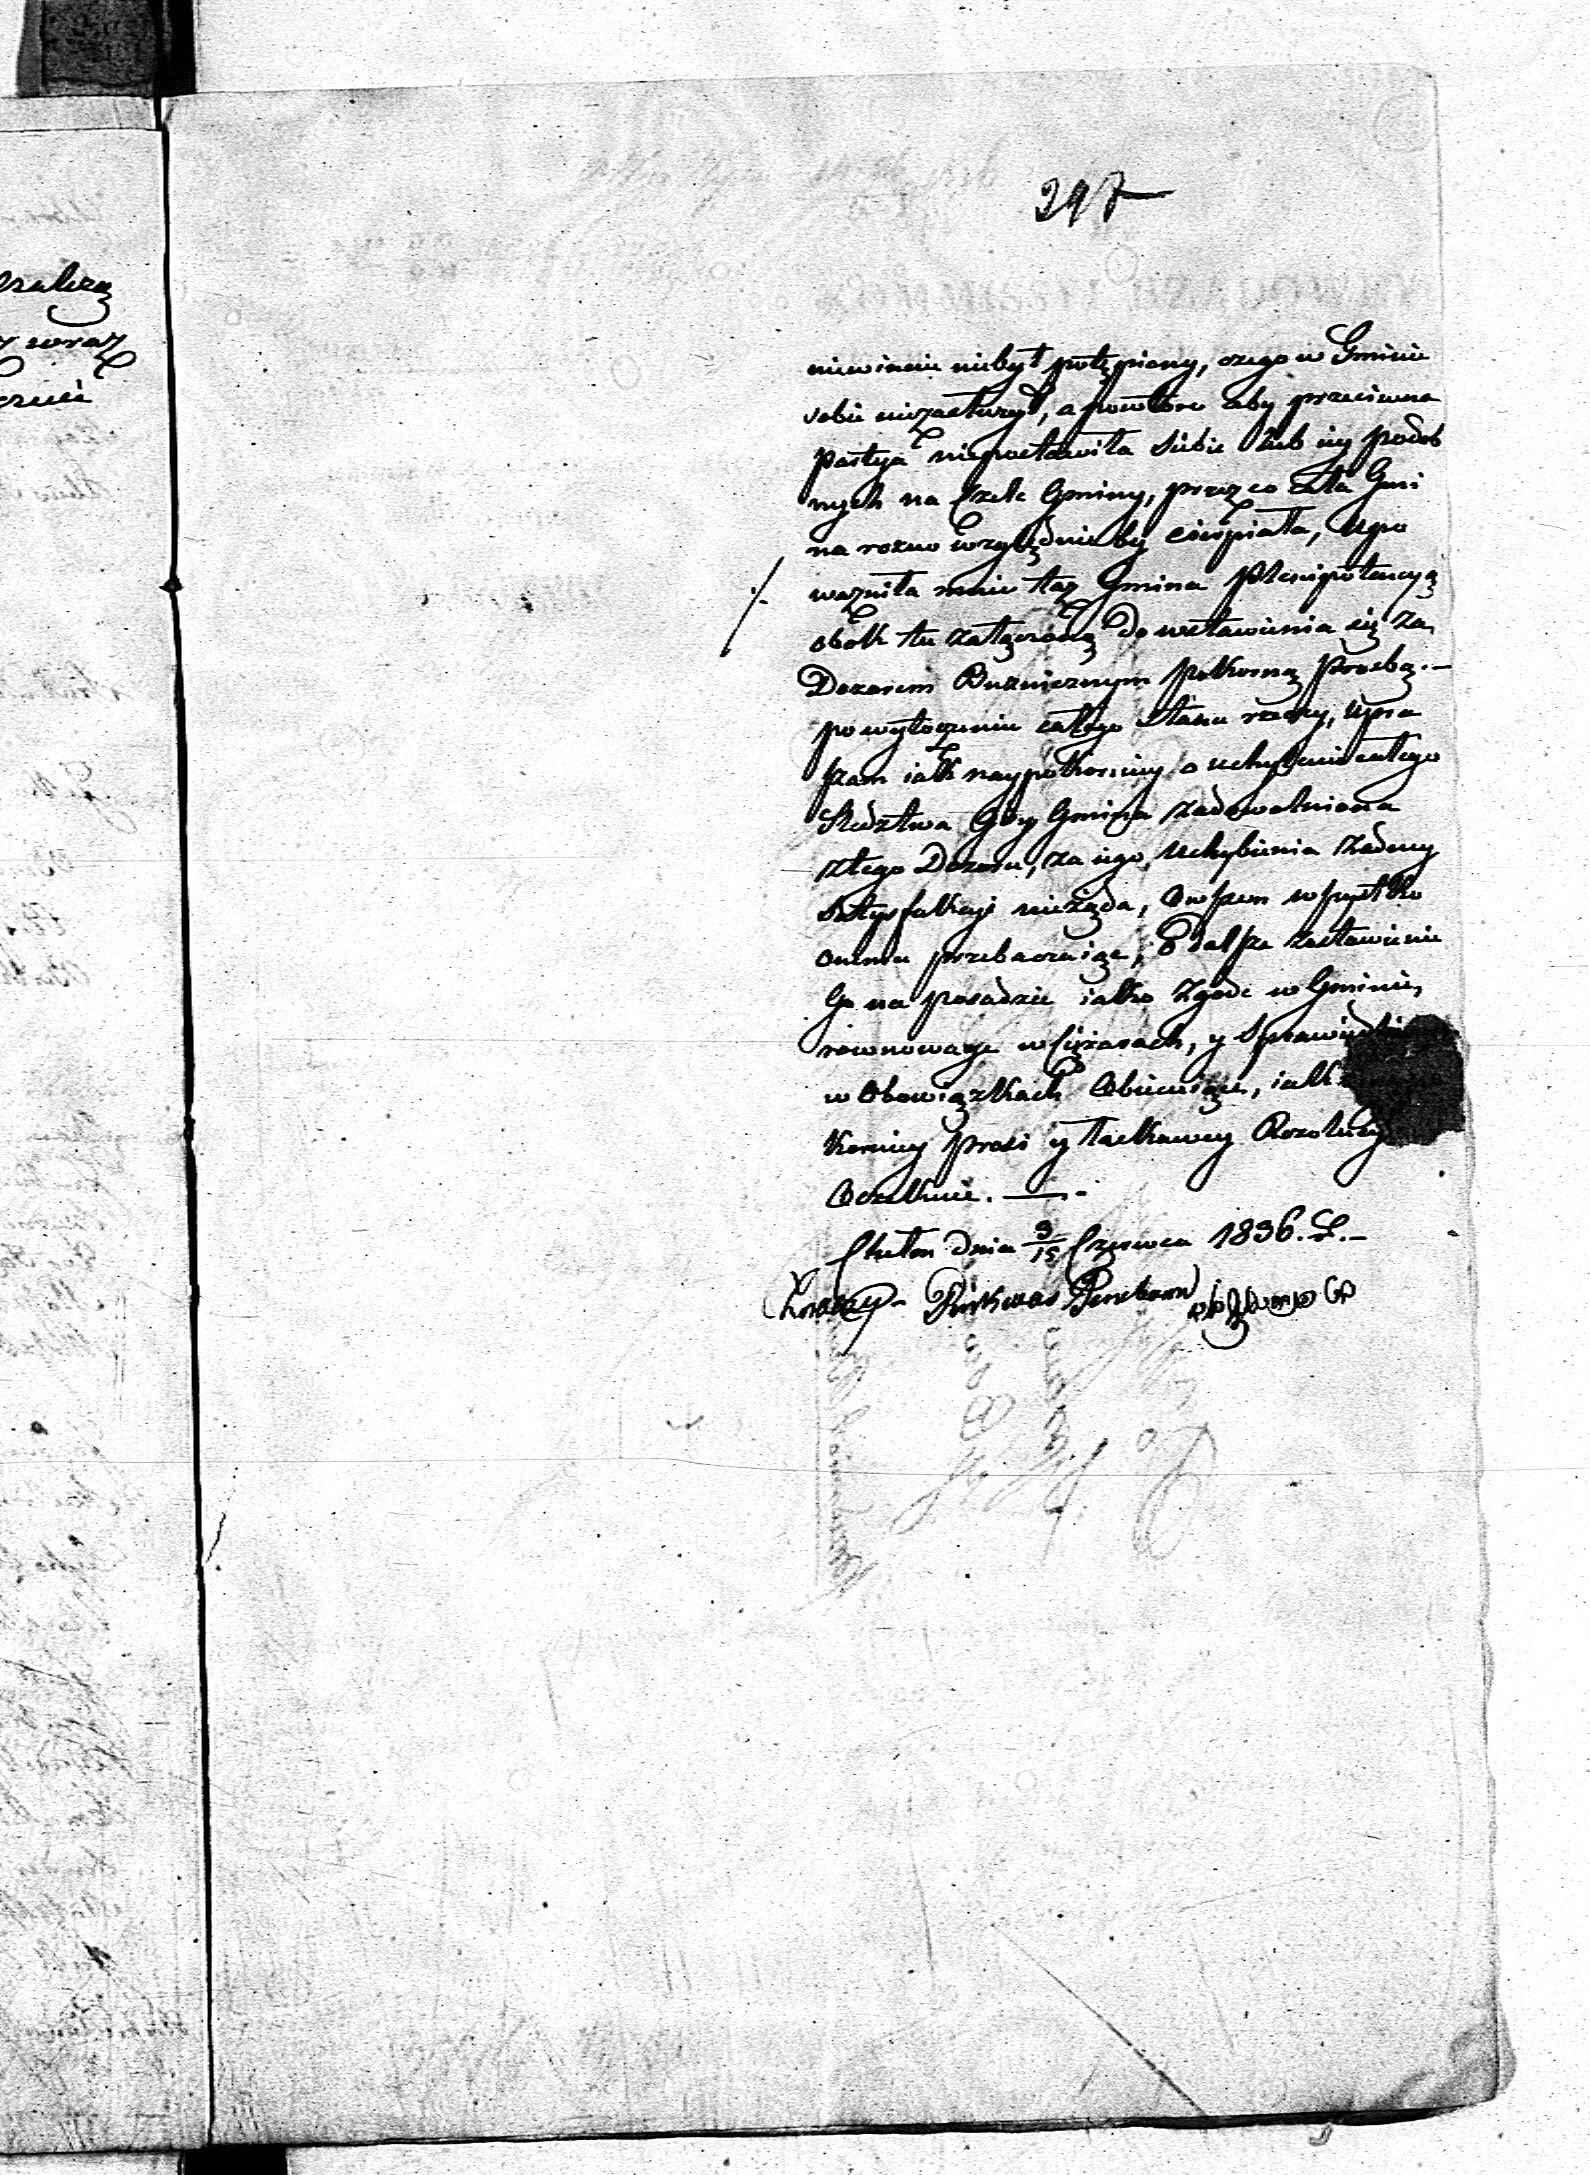 297
niewinnie niebył potępiony, czego w Gminie
sobie niezasłużył, a powtóre aby przeciwna
partya niepostawiła siebie lub iey podob
nych na Czele Gminy, przez co cała Gmi
na rozno względnie by cierpiała, upo
ważniła mnie taż Gmina Plenipotencyą
obok tu załączoną do wstawienia się za
Dozorem Bużnicznym pokorną prozbą.—
po wyłożeniu całego stanu rzeczy, upra
szam iak naypokorniey o uchylenie całego
Sledztwa Gdy Gmina zadowolniona
z tego Dozoru, za iego uchybienia żadney
Satysfakcyi nieżąda, Owszem wszystko
onemu przebaczaiąc, o dalsze zostawienie
Go na posadzie iako Zgodę w Gminie,
rownowagę w Ciężarach, y
w Obowiązkach Obiecuiące, iak
korniey prosi y łaskawey Rezolucyi
Oczekuie.—
dnia 3/15 Czerwca 1836. R.—